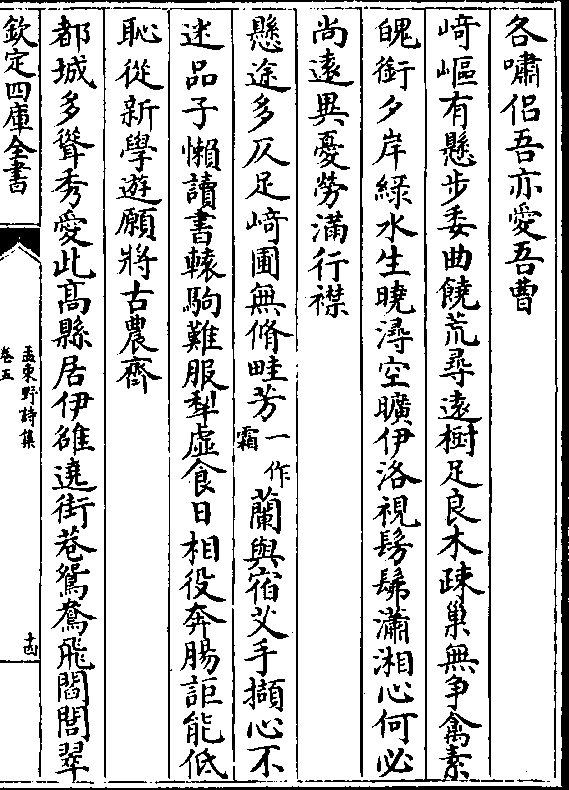 各嘯侣吾亦愛吾曹
崎嶇有懸步委曲饒荒尋遠樹足良木疎巢無争禽素
魄銜夕岸緑水生曉潯空曠伊洛視髣髴瀟湘心何必
尚遠異憂勞滿行襟
懸途多仄足崎圃無脩畦芳一作霜蘭與宿艾手擷心不
迷品子懶讀書轅駒難服犂虚食日相役奔腸詎能低
恥從新學遊願將古農齊
都城多聳秀愛此髙縣居伊雒遶街巷鴛鴦飛閻閭翠
欽定四庫全書
孟東野詩集
卷五
十四